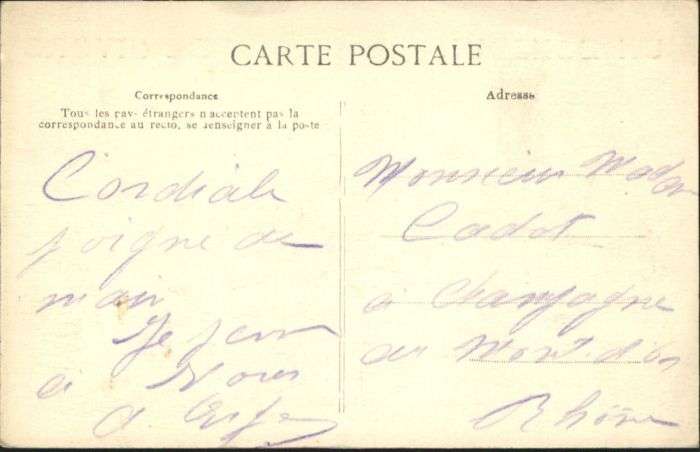 CARTE POSTALE
Correspondance
Tous les pays étrangers n'acceptent pas la
correspondance au recto, se renseigner à la poste
Cordiale
poigne de
main
Je pense
à Vous
Adresse
Monsieur Madame
Cadot
à Champagne
au Mont. d'or
Rhône